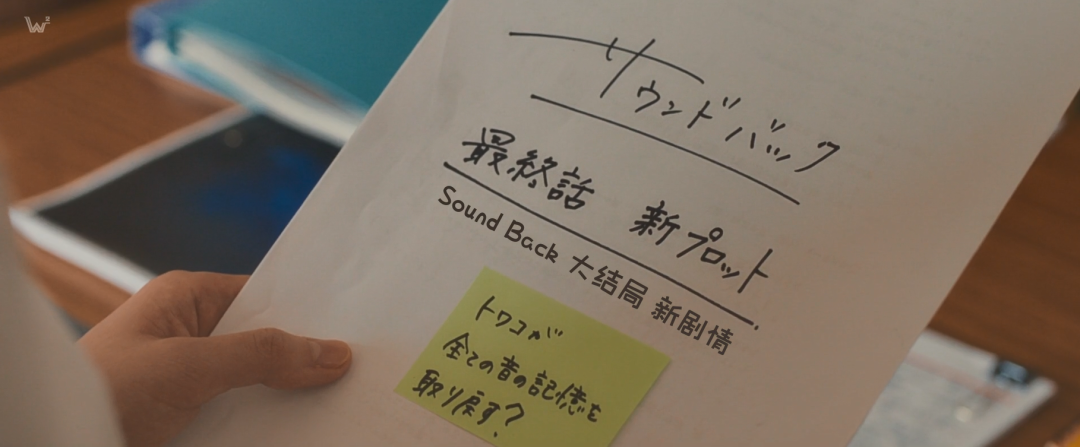 W²
サウンドバック
最終話 新プロット
Sound Back 大结局 新剧情
トワコが
全ての音の記憶を
取り戻す?